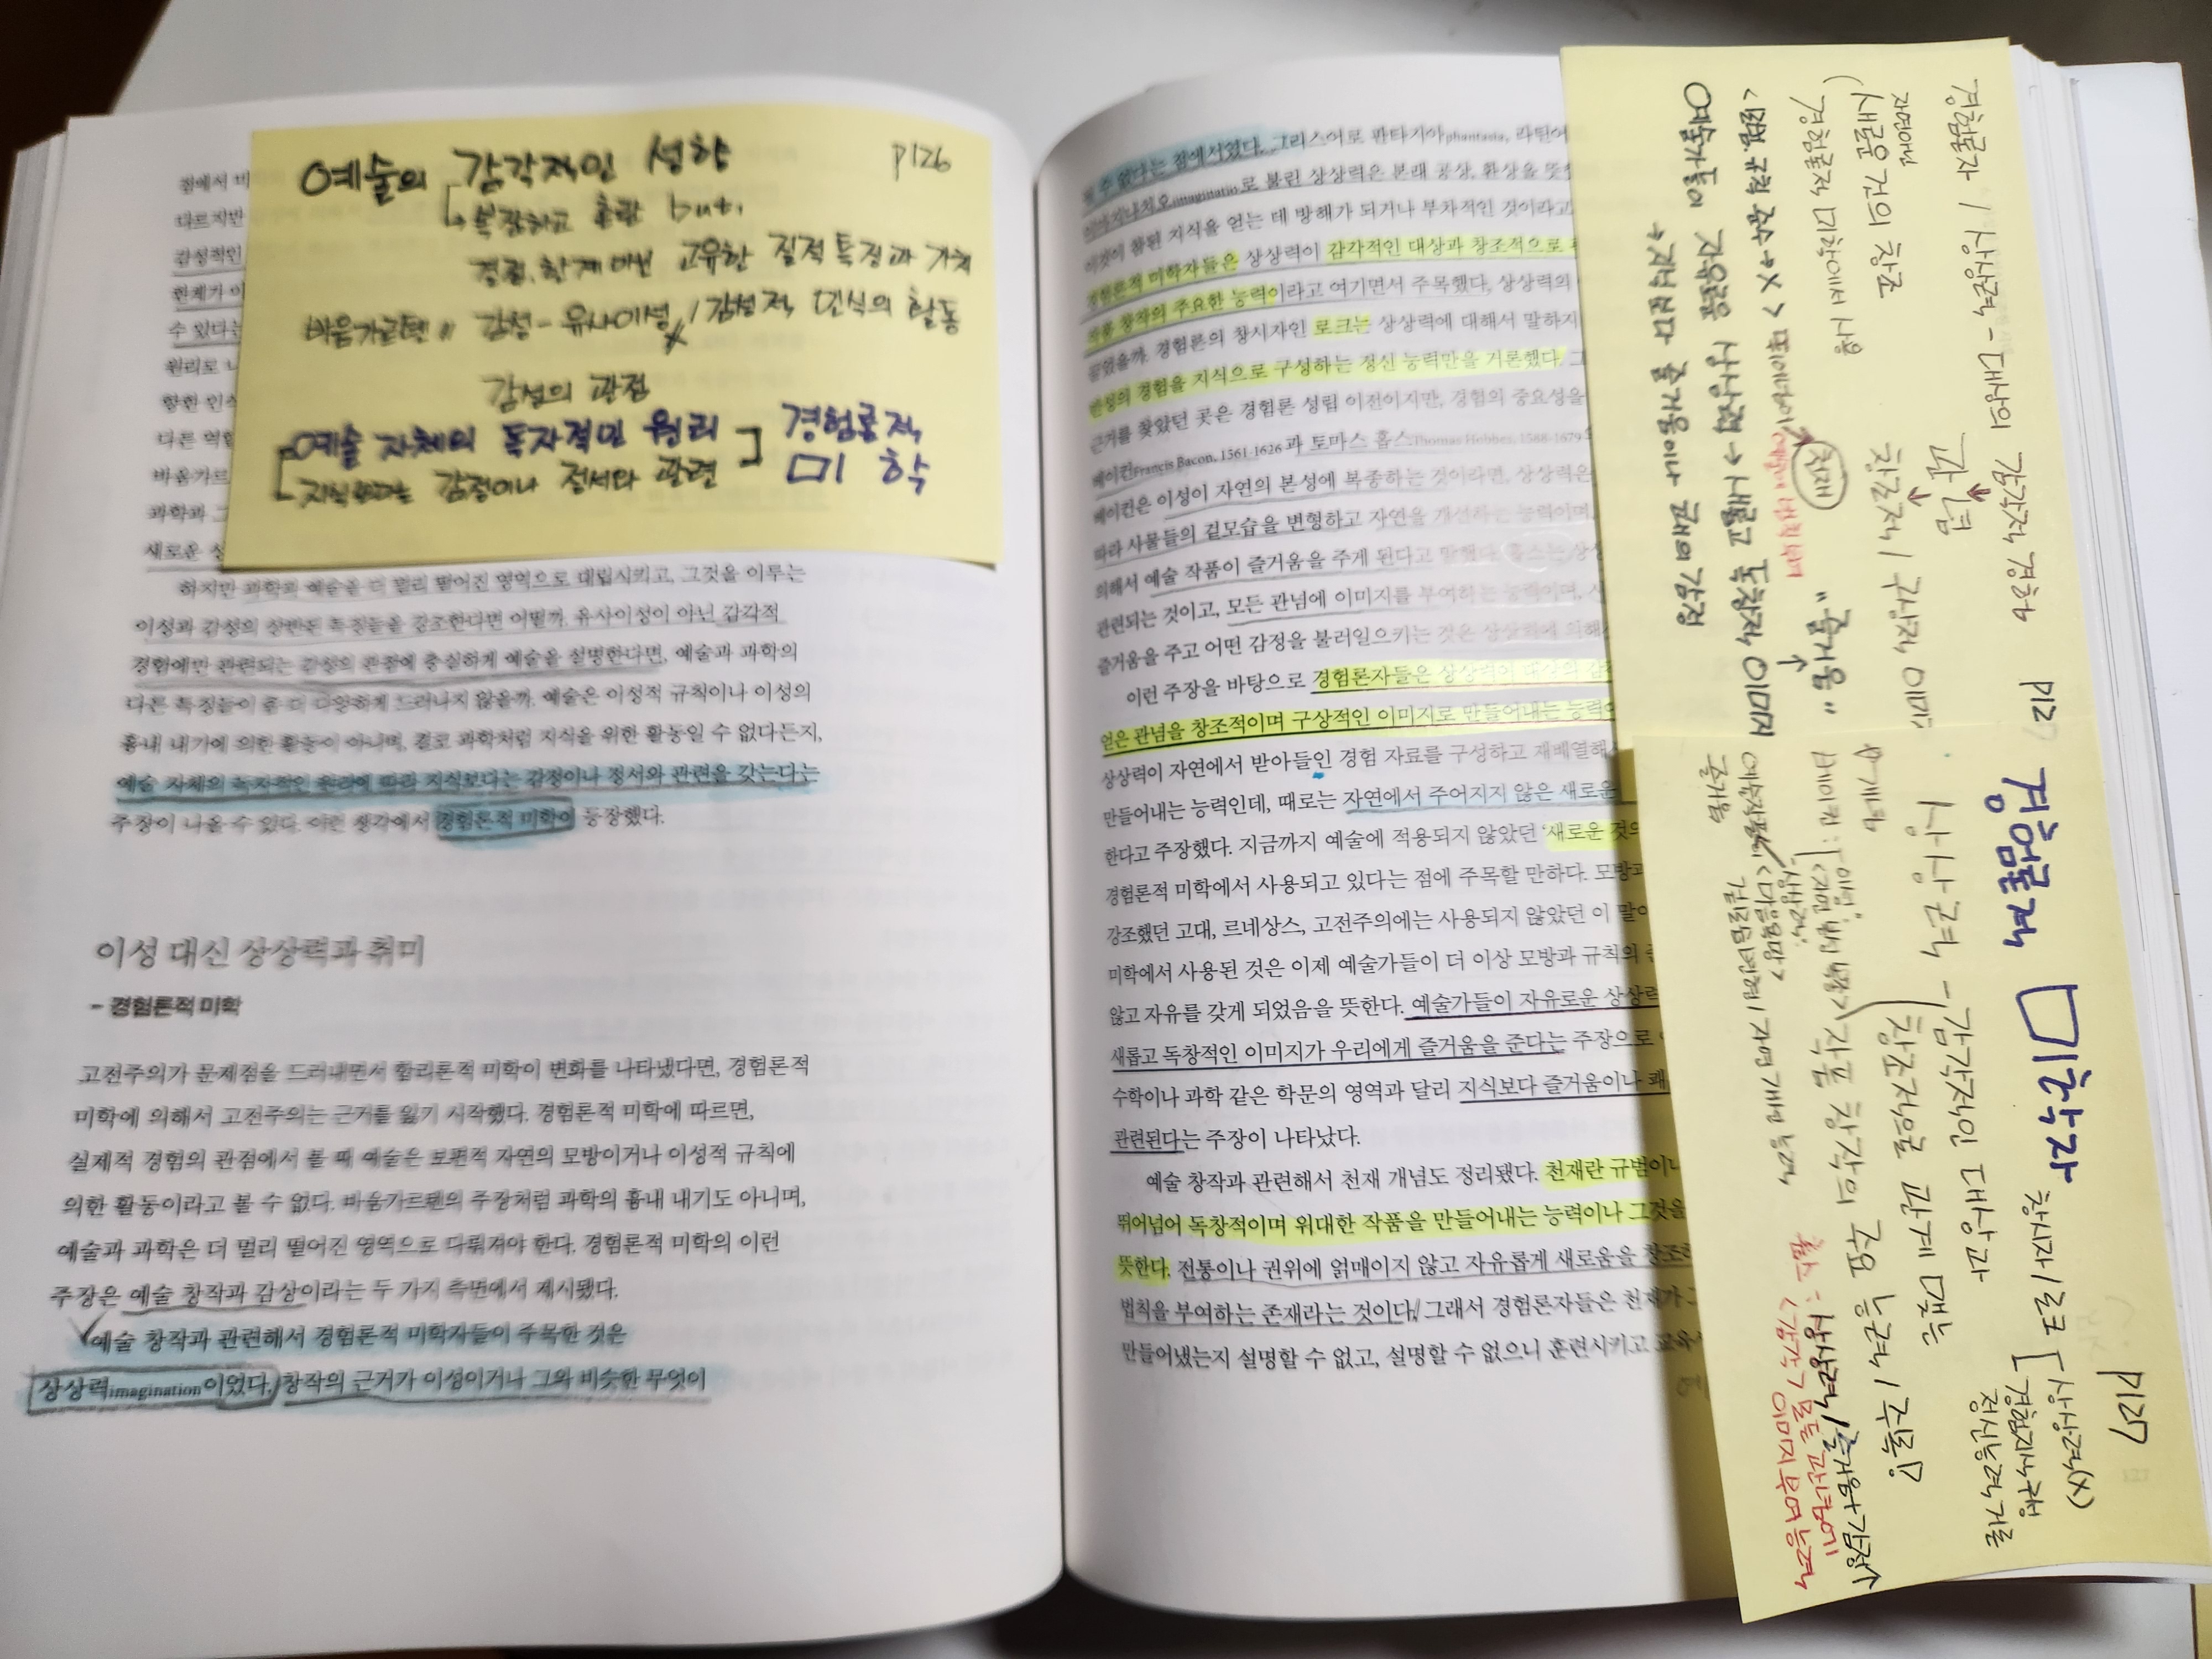 예술의 감각적인 성향 p126
복잡하고 혼란 but,
경쾌, 한계 대신 고유한 질적 특징과 가치
바움가르텐 〃 감성 - 유사이성 / 감성적 인식의 활동
감성의 관점
예술 자체의 독자적인 원리
지식보다는 감정이나 정서와 관련
경험론적
미학
점에서
다르지만
감성적인
한계가
수 있다는
원리로
향한 인식
다른 역할
바움가르
과학과
새로운
하지만 과학과 예술을 더 멀리 떨어진 영역으로 대립시키고, 그것을 이루는
이성과 감성의 상반된 특징들을 강조한다면 어떨까. 유사이성이 아닌 감각적
경험에만 관련되는 감성의 관점에 충실하게 예술을 설명한다면, 예술과 과학의
다른 특징들이 좀 더 다양하게 드러나지 않을까. 예술은 이성적 규칙이나 이성의
흉내 내기에 의한 활동이 아니며, 결코 과학처럼 지식을 위한 활동일 수 없다든지,
예술 자체의 독자적인 원리에 따라 지식보다는 감정이나 정서와 관련을 갖는다는
주장이 나올 수 있다. 이런 생각에서 경험론적 미학이 등장했다.
이성 대신 상상력과 취미
- 경험론적 미학
고전주의가 문제점을 드러내면서 합리론적 미학이 변화를 나타냈다면, 경험론적
미학에 의해서 고전주의는 근거를 잃기 시작했다. 경험론적 미학에 따르면,
실제적 경험의 관점에서 볼 때 예술은 보편적 자연의 모방이거나 이성적 규칙에
의한 활동이라고 볼 수 없다. 바움가르텐의 주장처럼 과학의 흉내 내기도 아니며,
예술과 과학은 더 멀리 떨어진 영역으로 다뤄져야 한다. 경험론적 미학의 이런
주장은 예술 창작과 감상이라는 두 가지 측면에서 제시됐다.
예술 창작과 관련해서 경험론적 미학자들이 주목한 것은
상상력imagination이었다. 창작의 근거가 이성이거나 그와 비슷한 무엇이
될 수 없다는 점에서였다. 그리스어로 판타지아phantasia, 라틴어
이마지나치오imaginatio로 불린 상상력은 본래 공상, 환상을 뜻
이것이 참된 지식을 얻는 데 방해가 되거나 부차적인 것이라고
경험론적 미학자들은 상상력이 감각적인 대상과 창조적으로
작품 창작의 주요한 능력이라고 여기면서 주목했다. 상상력의
끌었을까. 경험론의 창시자인 로크는 상상력에 대해서 말하지
반성의 경험을 지식으로 구성하는 정신 능력만을 거론했다. 그
근거를 찾았던 곳은 경험론 성립 이전이지만, 경험의 중요성을
베이컨Francis Bacon, 1561-1626과 토마스 홉스Thomas Hobbes, 1588-1679
베이컨은 이성이 자연의 본성에 복종하는 것이라면, 상상력은
따라 사물들의 겉모습을 변형하고 자연을 개선하는 능력이며,
의해서 예술 작품이 즐거움을 주게 된다고 말했다. 홉스는 상상
관련되는 것이고, 모든 관념에 이미지를 부여하는 능력이며,
즐거움을 주고 어떤 감정을 불러일으키는 것은 상상력에 의해
이런 주장을 바탕으로 경험론자들은 상상력이 대상의 감
얻은 관념을 창조적이며 구상적인 이미지로 만들어내는 능력
상상력이 자연에서 받아들인 경험 자료를 구성하고 재배열해
만들어내는 능력인데, 때로는 자연에서 주어지지 않은 새로운
한다고 주장했다. 지금까지 예술에 적용되지 않았던 '새로운 것의
경험론적 미학에서 사용되고 있다는 점에 주목할 만하다. 모방
강조했던 고대, 르네상스, 고전주의에는 사용되지 않았던 이 말이
미학에서 사용된 것은 이제 예술가들이 더 이상 모방과 규칙의
않고 자유를 갖게 되었음을 뜻한다. 예술가들이 자유로운 상상력
새롭고 독창적인 이미지가 우리에게 즐거움을 준다는 주장으로
수학이나 과학 같은 학문의 영역과 달리 지식보다 즐거움이나 쾌
관련된다는 주장이 나타났다.
예술 창작과 관련해서 천재 개념도 정리됐다. 천재란 규범이나
뛰어넘어 독창적이며 위대한 작품을 만들어내는 능력이나 그것을
뜻한다. 전통이나 권위에 얽매이지 않고 자유롭게 새로움을 창조
법칙을 부여하는 존재라는 것이다. 그래서 경험론자들은 천재가
만들어냈는지 설명할 수 없고, 설명할 수 없으니 훈련시키고 교육
p127
경험론자 / 상상력 - 대상의 감각적 경험
관념
창조적 / 구상적 이미지
재배열
(새로운 것의 창조
경험론적 미학에서 사용
천재
"즐거움"
예술가들이 자유로운 상상력 → 새롭고 독창적 이미지
→ 지식보다 즐거움이나 쾌의 감정
p127
경험론적 미학자
창시자 / 로크 [ 상상력(X)
경험 지식 구성
정신능력 거론
상상력 - 감각적인 대상과
창조적으로 관계 맺는
작품 창작의 주요 능력 / 주목?
베이컨 : 이성
상상력 : <마음 욕망>
겉모습 변형 / 자연 개선 능력
예술작품
즐거움
홉스 : 상상력 / 즐거움 감정↑
<감각> 모든 관념에
이미지 부여 능력